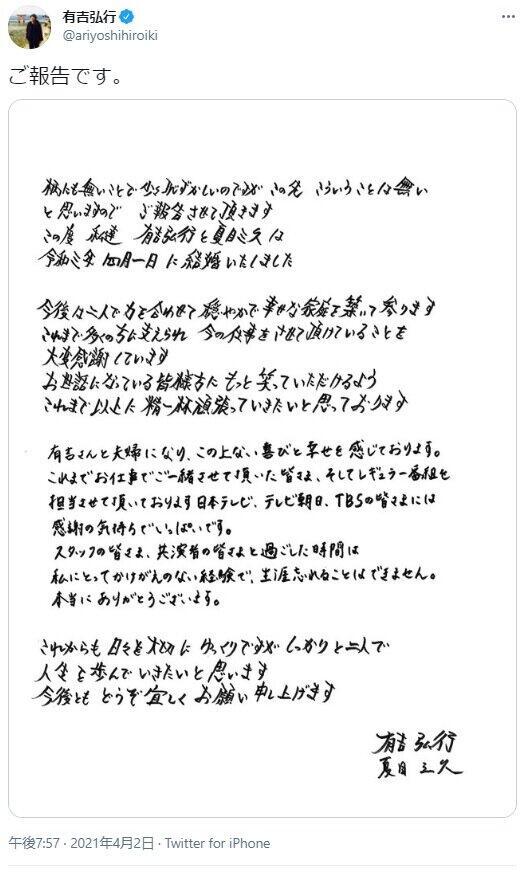 有吉弘行
@ariyoshihiroiki
ご報告です。
柄にも無いことで少々恥ずかしいのですが この先 こういうことは無い
と思いますので ご報告させて頂きます
この度 私達 有吉弘行と夏目三久は
令和三年 四月一日 に結婚いたしました
今後々二人で力を合わせて 穏やかで幸せな家庭を築いて参ります
これまで多くの方に支えられ 今の仕事をさせて頂けていることを
大変感謝しています
お世話になっている皆様方に もっと笑っていただけるよう
これまで以上に 精一杯頑張っていきたいと思っております
有吉さんと夫婦になり、この上ない喜びと幸せを感じております。
これまでお仕事でご一緒させて頂いた皆さま、そしてレギュラー番組を
担当させて頂いております日本テレビ、テレビ朝日、TBSの皆さまには
感謝の気持ちでいっぱいです。
スタッフの皆さま、共演者の皆さまと過ごした時間は
私にとってかけがえのない経験で、生涯忘れることはできません。
本当にありがとうございます。
これからも 日々を大切に ゆっくりですが しっかりと二人で
人生を歩んでいきたいと思います
今後とも どうぞ宜しく お願い申し上げます
有吉弘行
夏目三久
午後7:57 · 2021年4月2日 · Twitter for iPhone